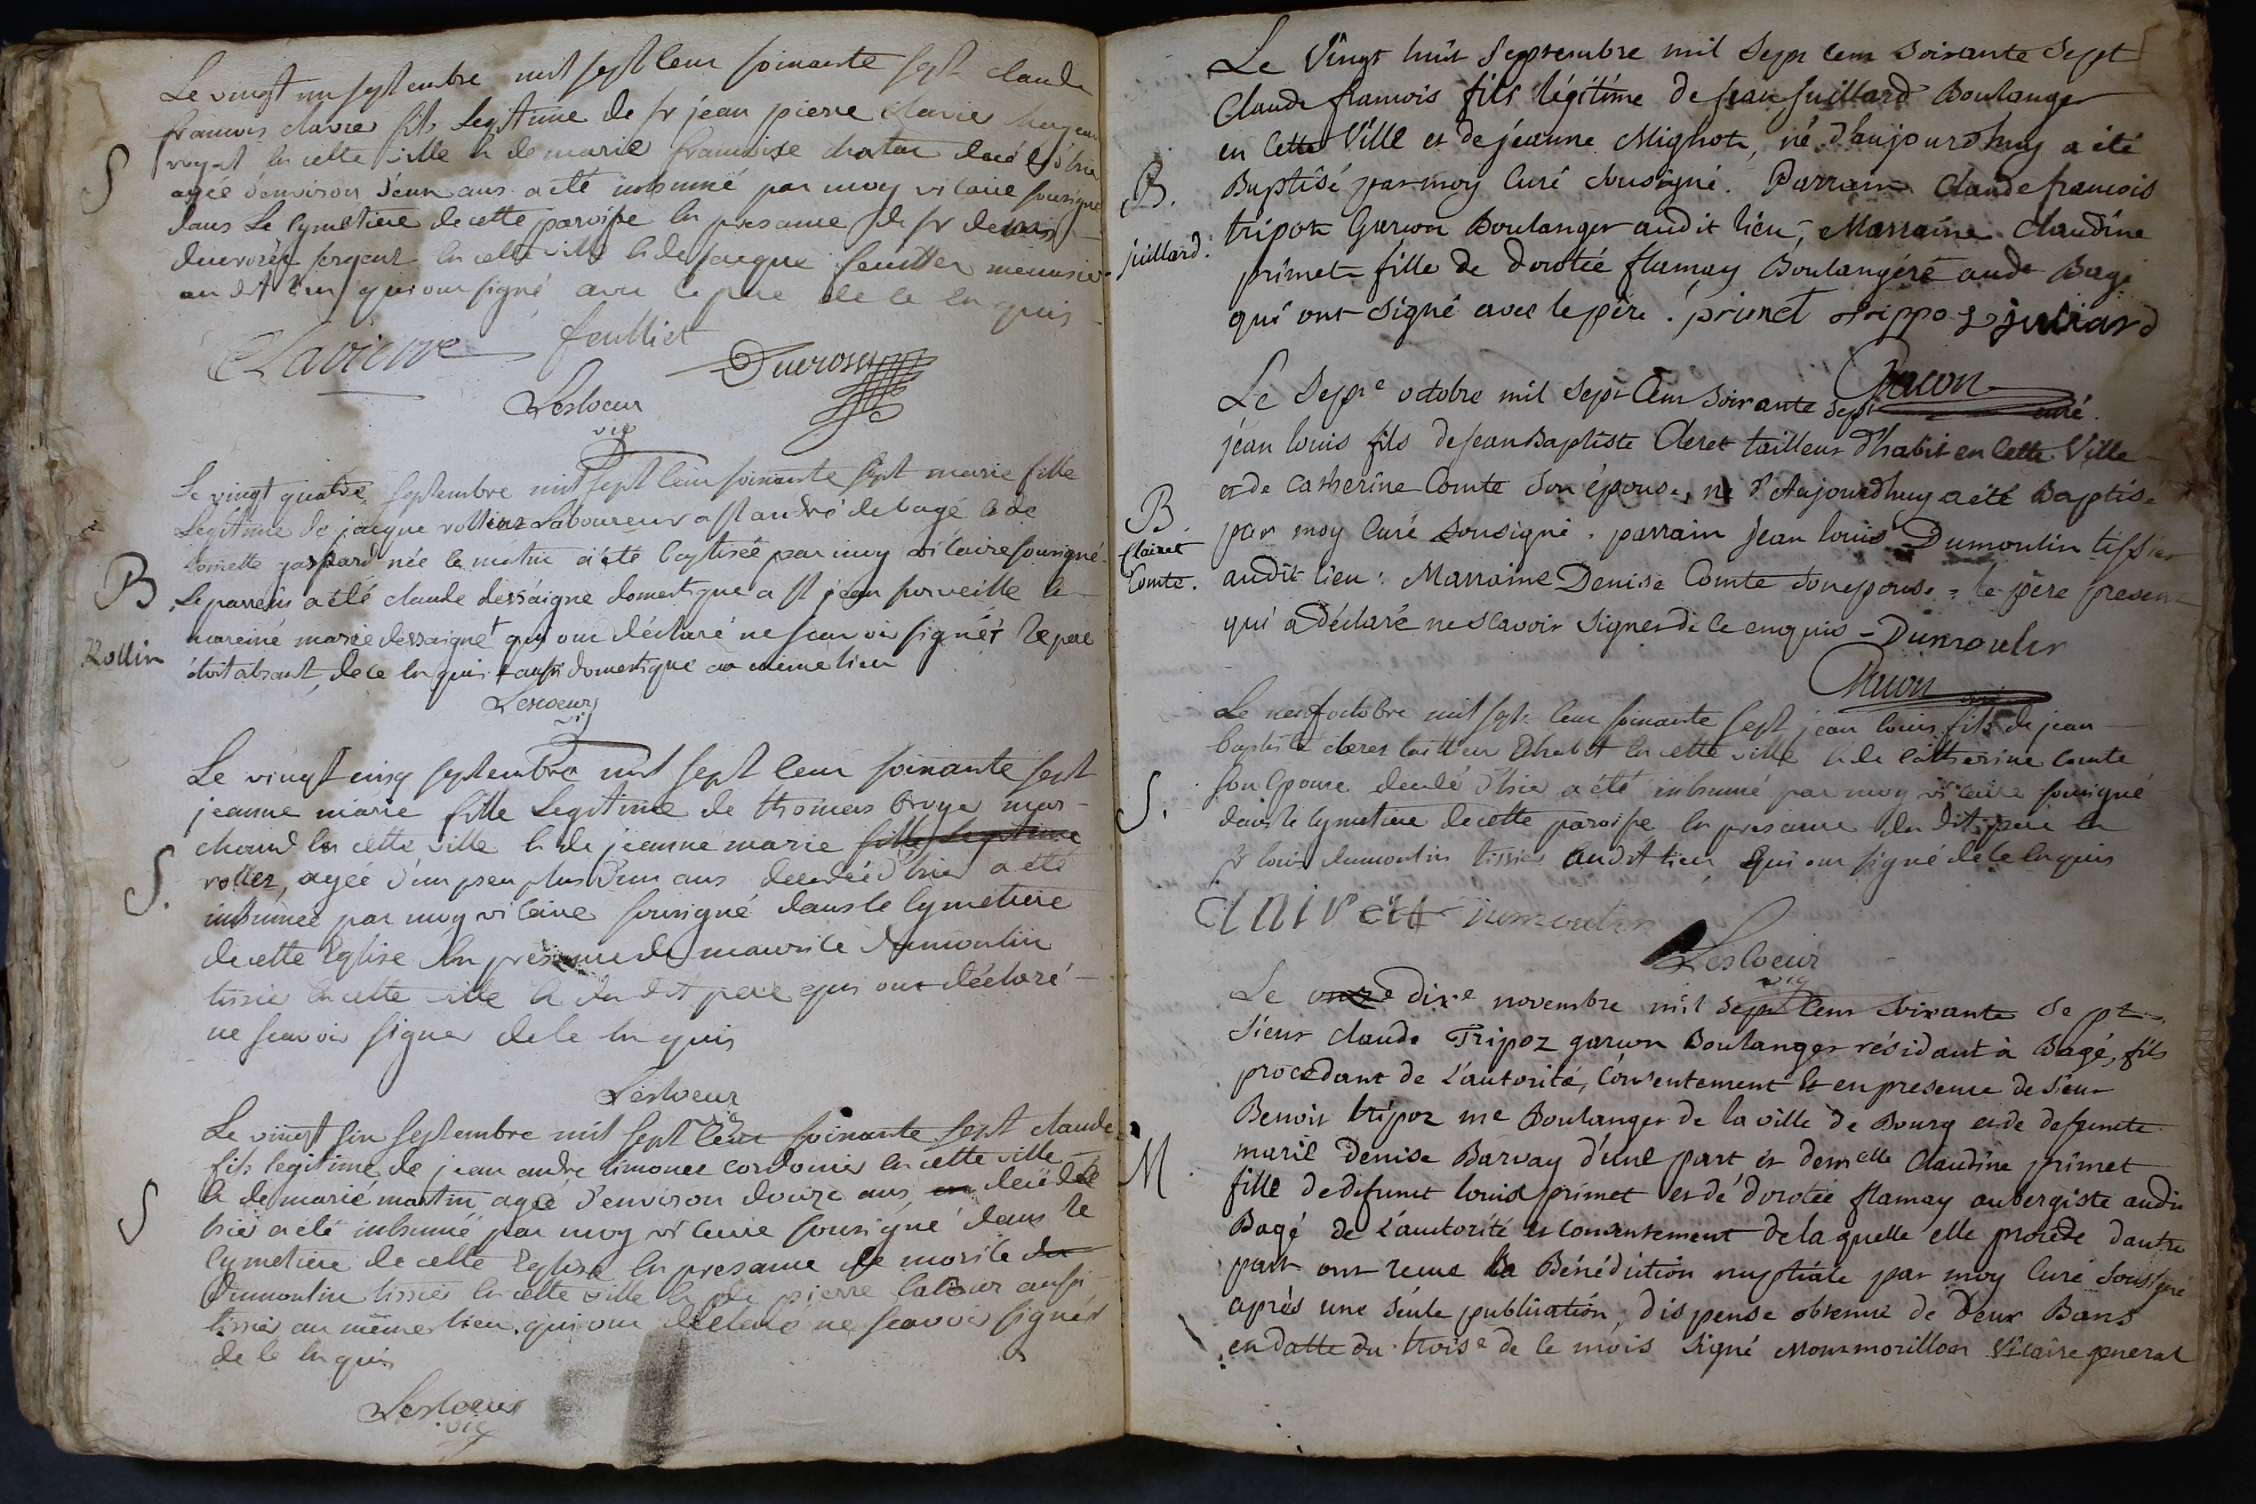 Le vingt un septembre mil sept cens soixante sept claude
francois clavier fils legitime de sr jean pierre clavier
royal en cette ville & de marie francoise decedé d'hier
agée d'environ deux ans a été inhumé par moy vicaire sousigné
dans le cymetiere de cette paroisse en presance de sr denis
ducrosey sergent en cette ville & de jacque feuillet menuisier
au dit lieu qui ont signé avec le pere de ce enquis
Clavierre feulliet
Ducrosey
Lescoeur
vic
S
Le vingt quatre septembre mil sept cens soixante sept marie fille
legitime de jacque rollin laboureur a st andré de bagé & de
gaspard née le matin a été baptisée par moy vicaire sousigné
B
Le parrein a été claude dessaigne domestique a st jean surveille la
mareine marie dessaigne† qui ont déclaré ne scavoir signer le pere
Rollin
étoit absant, de ce enquis † aussi domestique au même lieu
Lescoeur
vic
Le vingt cinq septembre mil sept cens soixante sept
jeanne marie fille legitime de thomas broyer mar-
chand en cette ville & de jeanne marie fille legitime
rollet, agée d'un peu plus d'un ans decedée d'hier a été
S.
inhumée par moy vicaire sousigné dans le cymetiere
de cette Eglise en présance de maurice dumoulin
tissier en cette ville & du dit pere qui ont déclaré
ne scavoir signer de ce enquis
Lescoeur
vic
Le vingt six septembre mil sept cens soixante sept claude
fils legitime de jean andre limonee cordonier en cette ville
& de marie martin agée d'environ douze ans, en decedé
S
hier a été inhumé par moy vicaire sousigné dans le
cymetiere de cette Eglise en presance de morice du
Dumoulin tissier en cette ville & de pierre latour aussi
tissier au même lieu. qui ont déclaré ne scavoir signer
de ce enquis
Lescoeur
vic
Le vingt huit Septembre mil Sept cens soixante Sept
Claude francois fils légitime de jean juillard Boulanger
en cette Ville et de jéanne Mignot, né d'aujourdhuy a été
B.
Baptisé par moy Curé Sousigné. Parrain Claude francois
juillard.
tripoz Garcon Boulanger audit lieu, Marraine Claudine
primet fille de dorotée flamay Boulangére aud. Bagé
qui ont signé avec le pére. primet trippoz juliard
Chacon
curé
Le Sept.e octobre mil sept Cens soixante Sept
jéan louis fils de jean Baptiste Cleret tailleur d'habit en cette Ville
et de Catherine Comte son épouse, né d'Aujourdhuy a été Baptisé
B.
Clairet
Comte.
par moy Curé sousigné. parrain jean louis Dumoulin tissier
audit lieu. Marraine Denise Comte son epouse. le pére present
qui a déclaré ne Scavoir Signer de ce enquis - Dumoulin
Chacon
curé
Le neuf octobre mil sept cens soixante sept jean louis fils de jean
baptiste cleret tailleur d'habit en cette ville & de catherine comte
son Epouse decedé d'hier a été inhumé par moy vicaire sousigné
S.
dans le cymetiere de cette paroisse en presance du dit pere et
sr louis dumoulin tissier audit lieu, qui ont signé de ce enquis
clairett dumoulin
Lescoeur
vic
Le onze dix.e novembre mil sept cens soixante Sept
Sieur claude Tripoz garcon Boulanger résidant à Bagé, fils
procedant de l'autorité, consentement & en presence de Sieur
Benoit tripoz me Boulanger de la ville de Bourg et de defunte
M
marie Denise Barvay d'une part et demlle Claudine primet
fille de defunt louis primet et de dorotée flamay aubergiste audit
Bagé de l'autorité et consentement de laquelle elle procéde d'autre
part ont recue la Bénédiction nuptiale par moy Curé Soussigné
après une Seule publication, dispense obtenue de deux Bans
en datte du trois.e de ce mois Signé Montmorillon Vicaire general